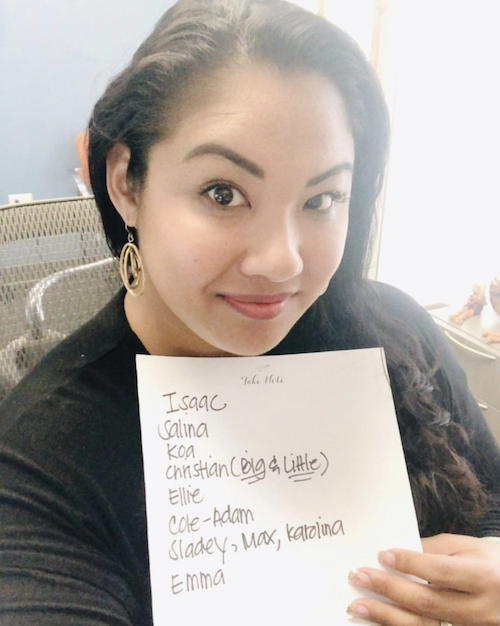 Take Note
Isaac
Salina
Koa
Christian (Big & Little)
Ellie
Cole-Adam
Sladey, Max, Karolina
Emma